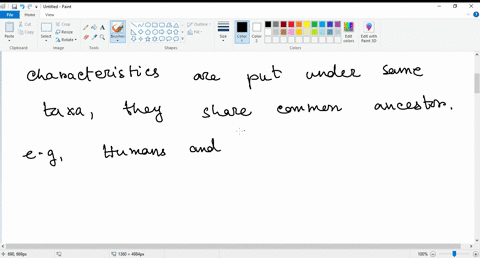 Untitled - Paint
File Home View
Paste Cut Copy Select Crop Resize Rotate Brushes Size Color 1 Color 2 Edit colors Edit with Paint 3D
Clipboard Image Tools Shapes Colors
characteristics are put under same
taxa, they share common ancestor.
e.g, Humans and
100%